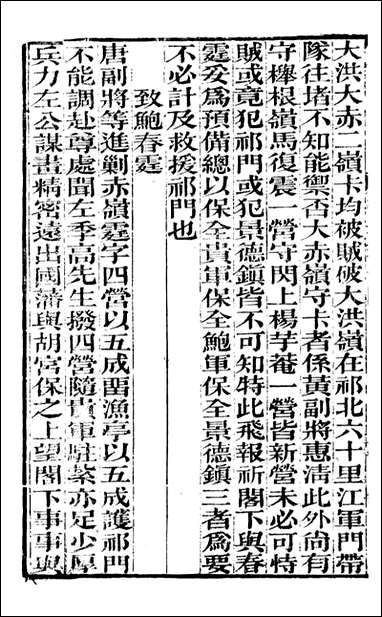 大洪大赤二嶺卡均被賊破大洪嶺在祁北六十里江軍門帶
隊往堵不知能禦否大赤嶺守卡者係黃副將惠清此外尚有
守櫸根嶺馬復震一營守閃上楊芋菴一營皆新營未必可恃
賊或竟犯祁門或犯景德鎮皆不可知特此飛報祈閣下與春
霆妥爲預備總以保全貴軍保全鮑軍保全景德鎮三者爲要
不必計及救援祁門也
致鮑春霆
唐副將等進剿赤嶺霆字四營以五成畱漁亭以五成護祁門
不能調赴尊處聞左季高先生撥四營隨貴軍駐紮亦足少厚
兵力左公謀畫精密遠出國藩與胡宮保之上望閣下事事與